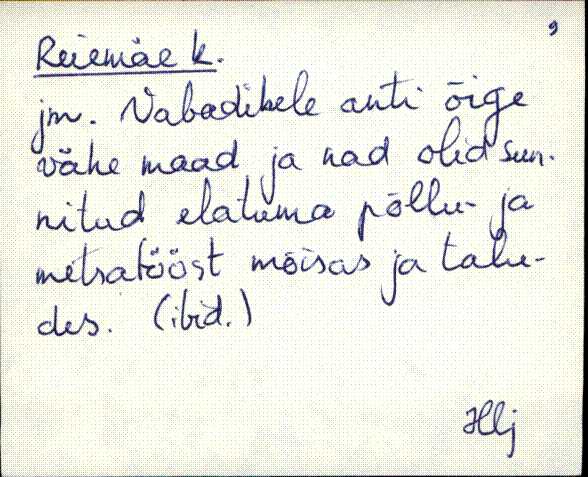 9
Reiemäe k.
jm. Vabadikele anti õige
vähe maad ja nad olid sun-
nitud elatuma põllu- ja
metsatööst mõisas ja talu-
des. (ibid.)
Hlj